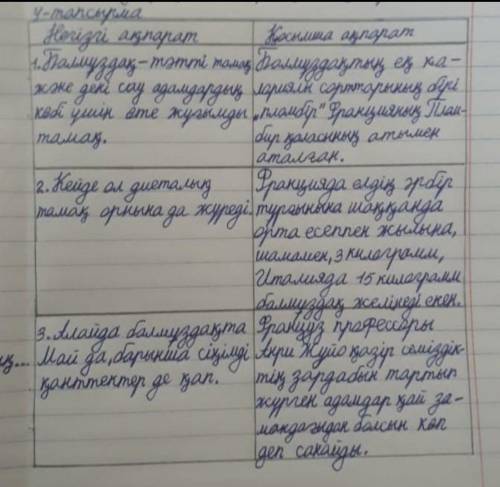 4-тапсырма
Негізгі ақпарат
1. Балмұздақ - тәтті тамақ
және дені сау адамдардың
көбі үшін өте жұғымды
тамақ.
Қосымша ақпарат
Балмұздақтың ең ка-
лориялы сорттарының бірі
"пломбир" Францияның Плом-
бир қаласының атымен
аталған.
2. Кейде ол диеталық
тамақ орнына да жүреді.
Францияда елдің әрбір
тұрғынына шаққанда
орта есеппен жылына,
шамамен, 3 килограмм,
Италияда 15 килограмм
балмұздақ желінеді екен.
3. Алайда балмұздақта
Май да, барынша сіңімді
қанттектер де көп.
Француз профессоры
Анри Жуйо қазір семіздік-
тің зардабын тартып
жүрген адамдар қай за-
мандағыдан болсын көп
деп санайды.